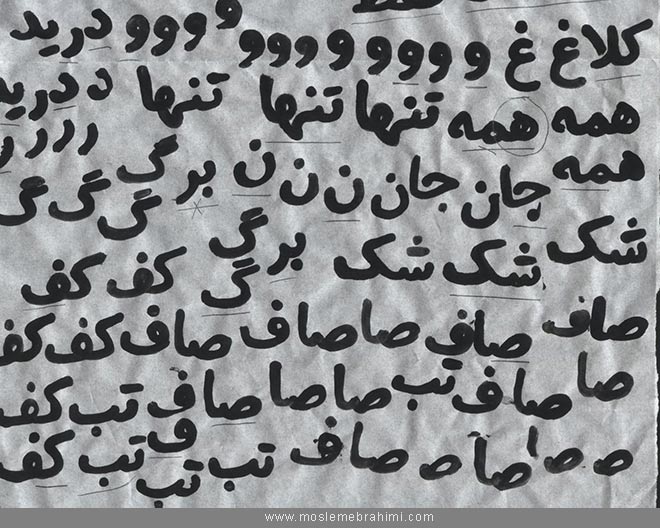 کلاغ غ و و و و و و و و و و درید
همه همه تنها تنها تنها د درید
همه جان جان ن ن ن بر گ ر ر ر ر
شک شک شک بر گ گ گ گ
صاف صاف صا صاف صاف گ کف کف
صا صاف تب صا صا صاف کف کف کف
ص ص صاص صاف تب تب کف
تب ف تب کف
www.moslemebrahimi.com